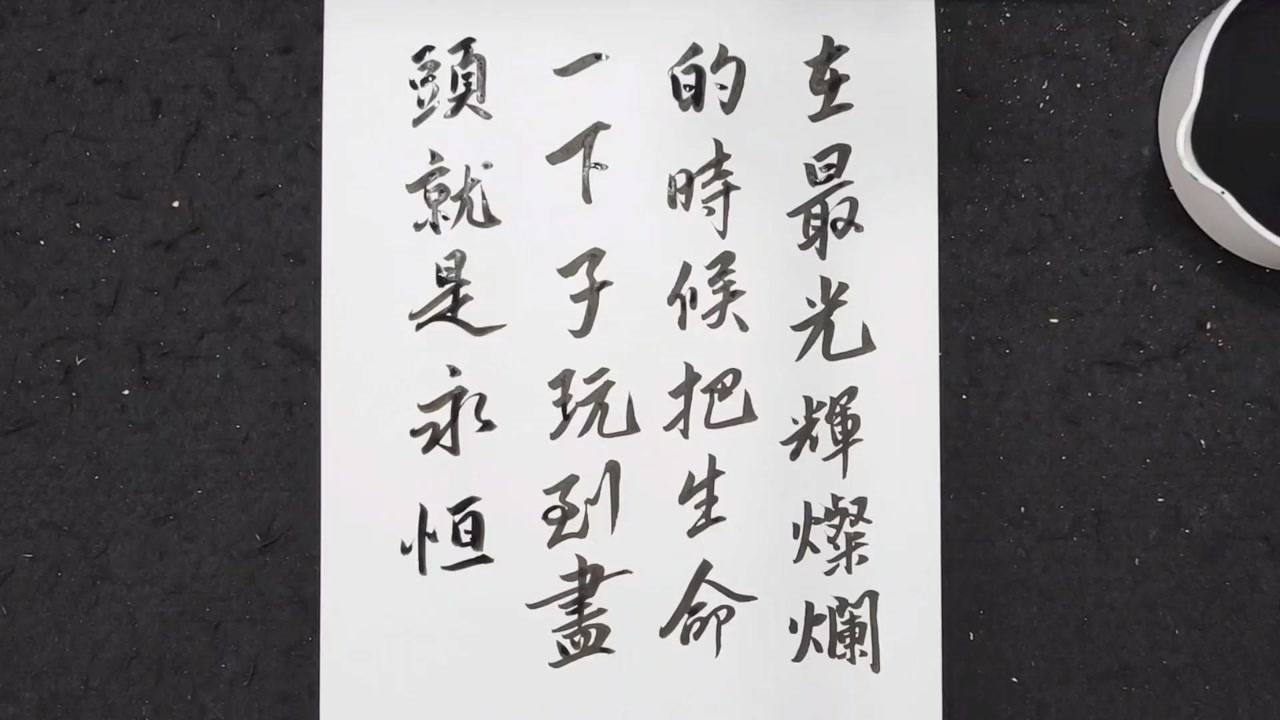 在最光輝燦爛
的時候把生命
一下子玩到盡
頭就是永恒